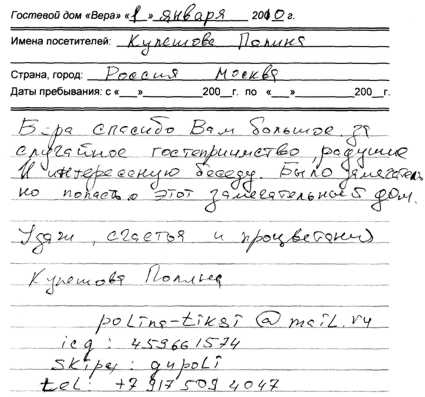 Гостевой дом «Вера» «1» января 2010 г.
Имена посетителей: Кулешова Полина
Страна, город: Россия Москва
Даты пребывания: с «___»________200__г. по «___»________200__г.
Вера спасибо Вам большое за
случайное гостеприимство, радушие
и интересную беседу. Было замечатель
но попасть в этот замечательный дом.
Удачи, счастья и процветания
Кулешова Полина
polina-tiksi@mail.ru
icq: 459661574
skipe: gupoli
tel: +7 917 509 4047